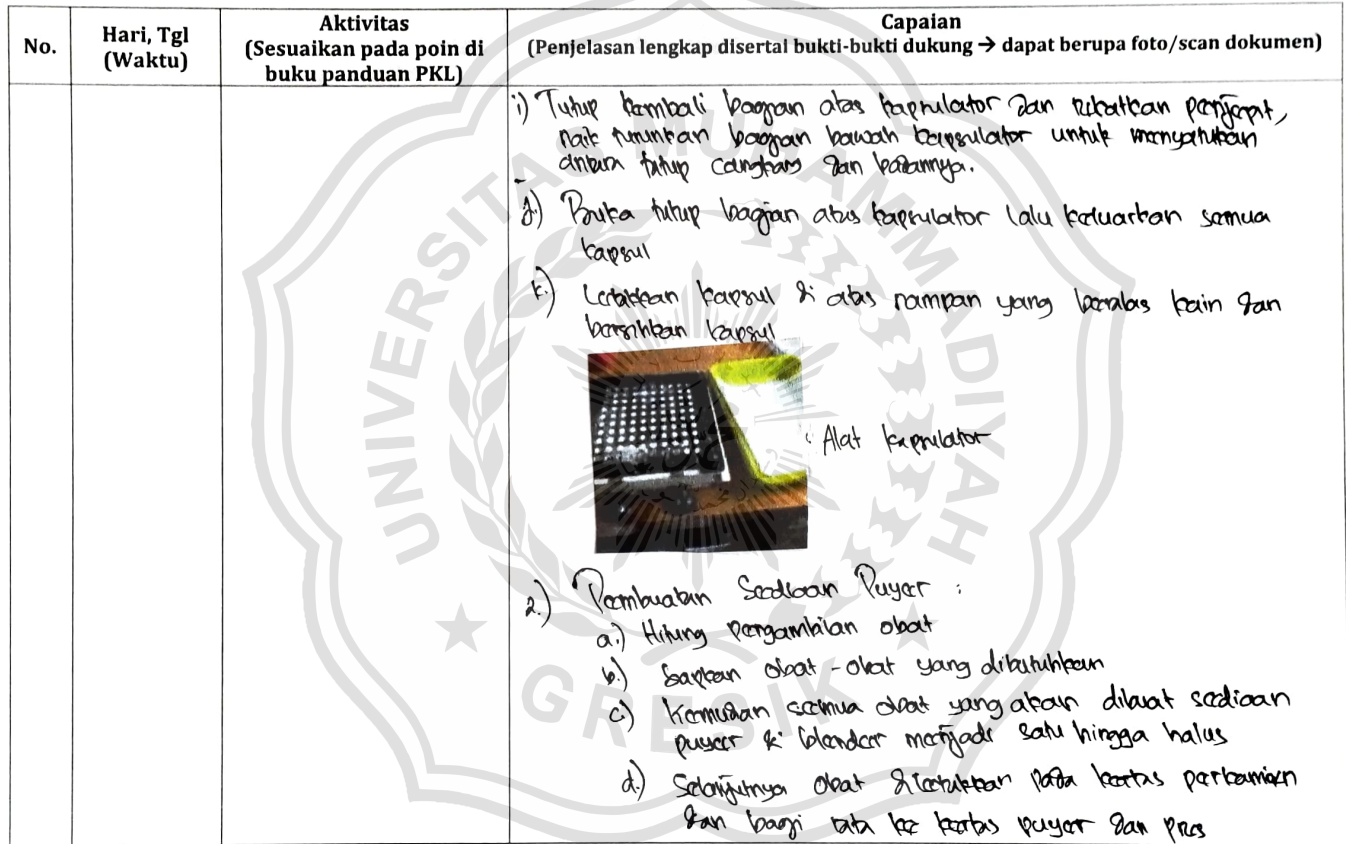 No.
Hari, Tgl
(Waktu)
Aktivitas
(Sesuaikan pada poin di
buku panduan PKL)
Capaian
(Penjelasan lengkap disertai bukti-bukti dukung → dapat berupa foto/scan dokumen)
i) Tutup kembali bagian atas kapsulator dan rekatkan penjepit,
naik turunkan bagian bawah kapsulator untuk menyatukan
antara tutup cangkang dan badannya.
j) Buka tutup bagian atas kapsulator lalu keluarkan semua
kapsul
k.) Letakkan kapsul di atas nampan yang beralas kain dan
bersihkan kapsul
: Alat kapsulator
2.) Pembuatan Sediaan Puyer :
a.) Hitung pengambilan obat
b.) Siapkan obat-obat yang dibutuhkan
c) Kemudian semua obat yang akan dibuat sediaan
puyer di blender menjadi satu hingga halus
d.) Selanjutnya obat diletakkan pada kertas perkamen
dan bagi rata ke kertas puyer dan pres
UNIVERSITAS MUHAMMADIYAH
GRESIK